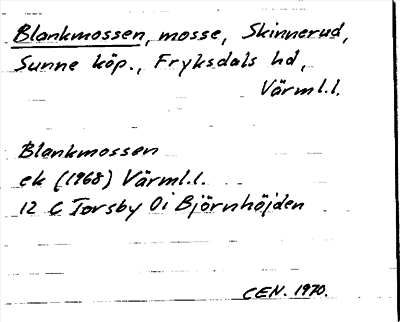 Blankmossen, mosse, Skinnerud,
Sunne köp., Fryksdals hd,
Värml.l.
Blankmossen
ek (1968) Värml.l.
12 C Torsby 0i Björnhöjden
CEN. 1970.